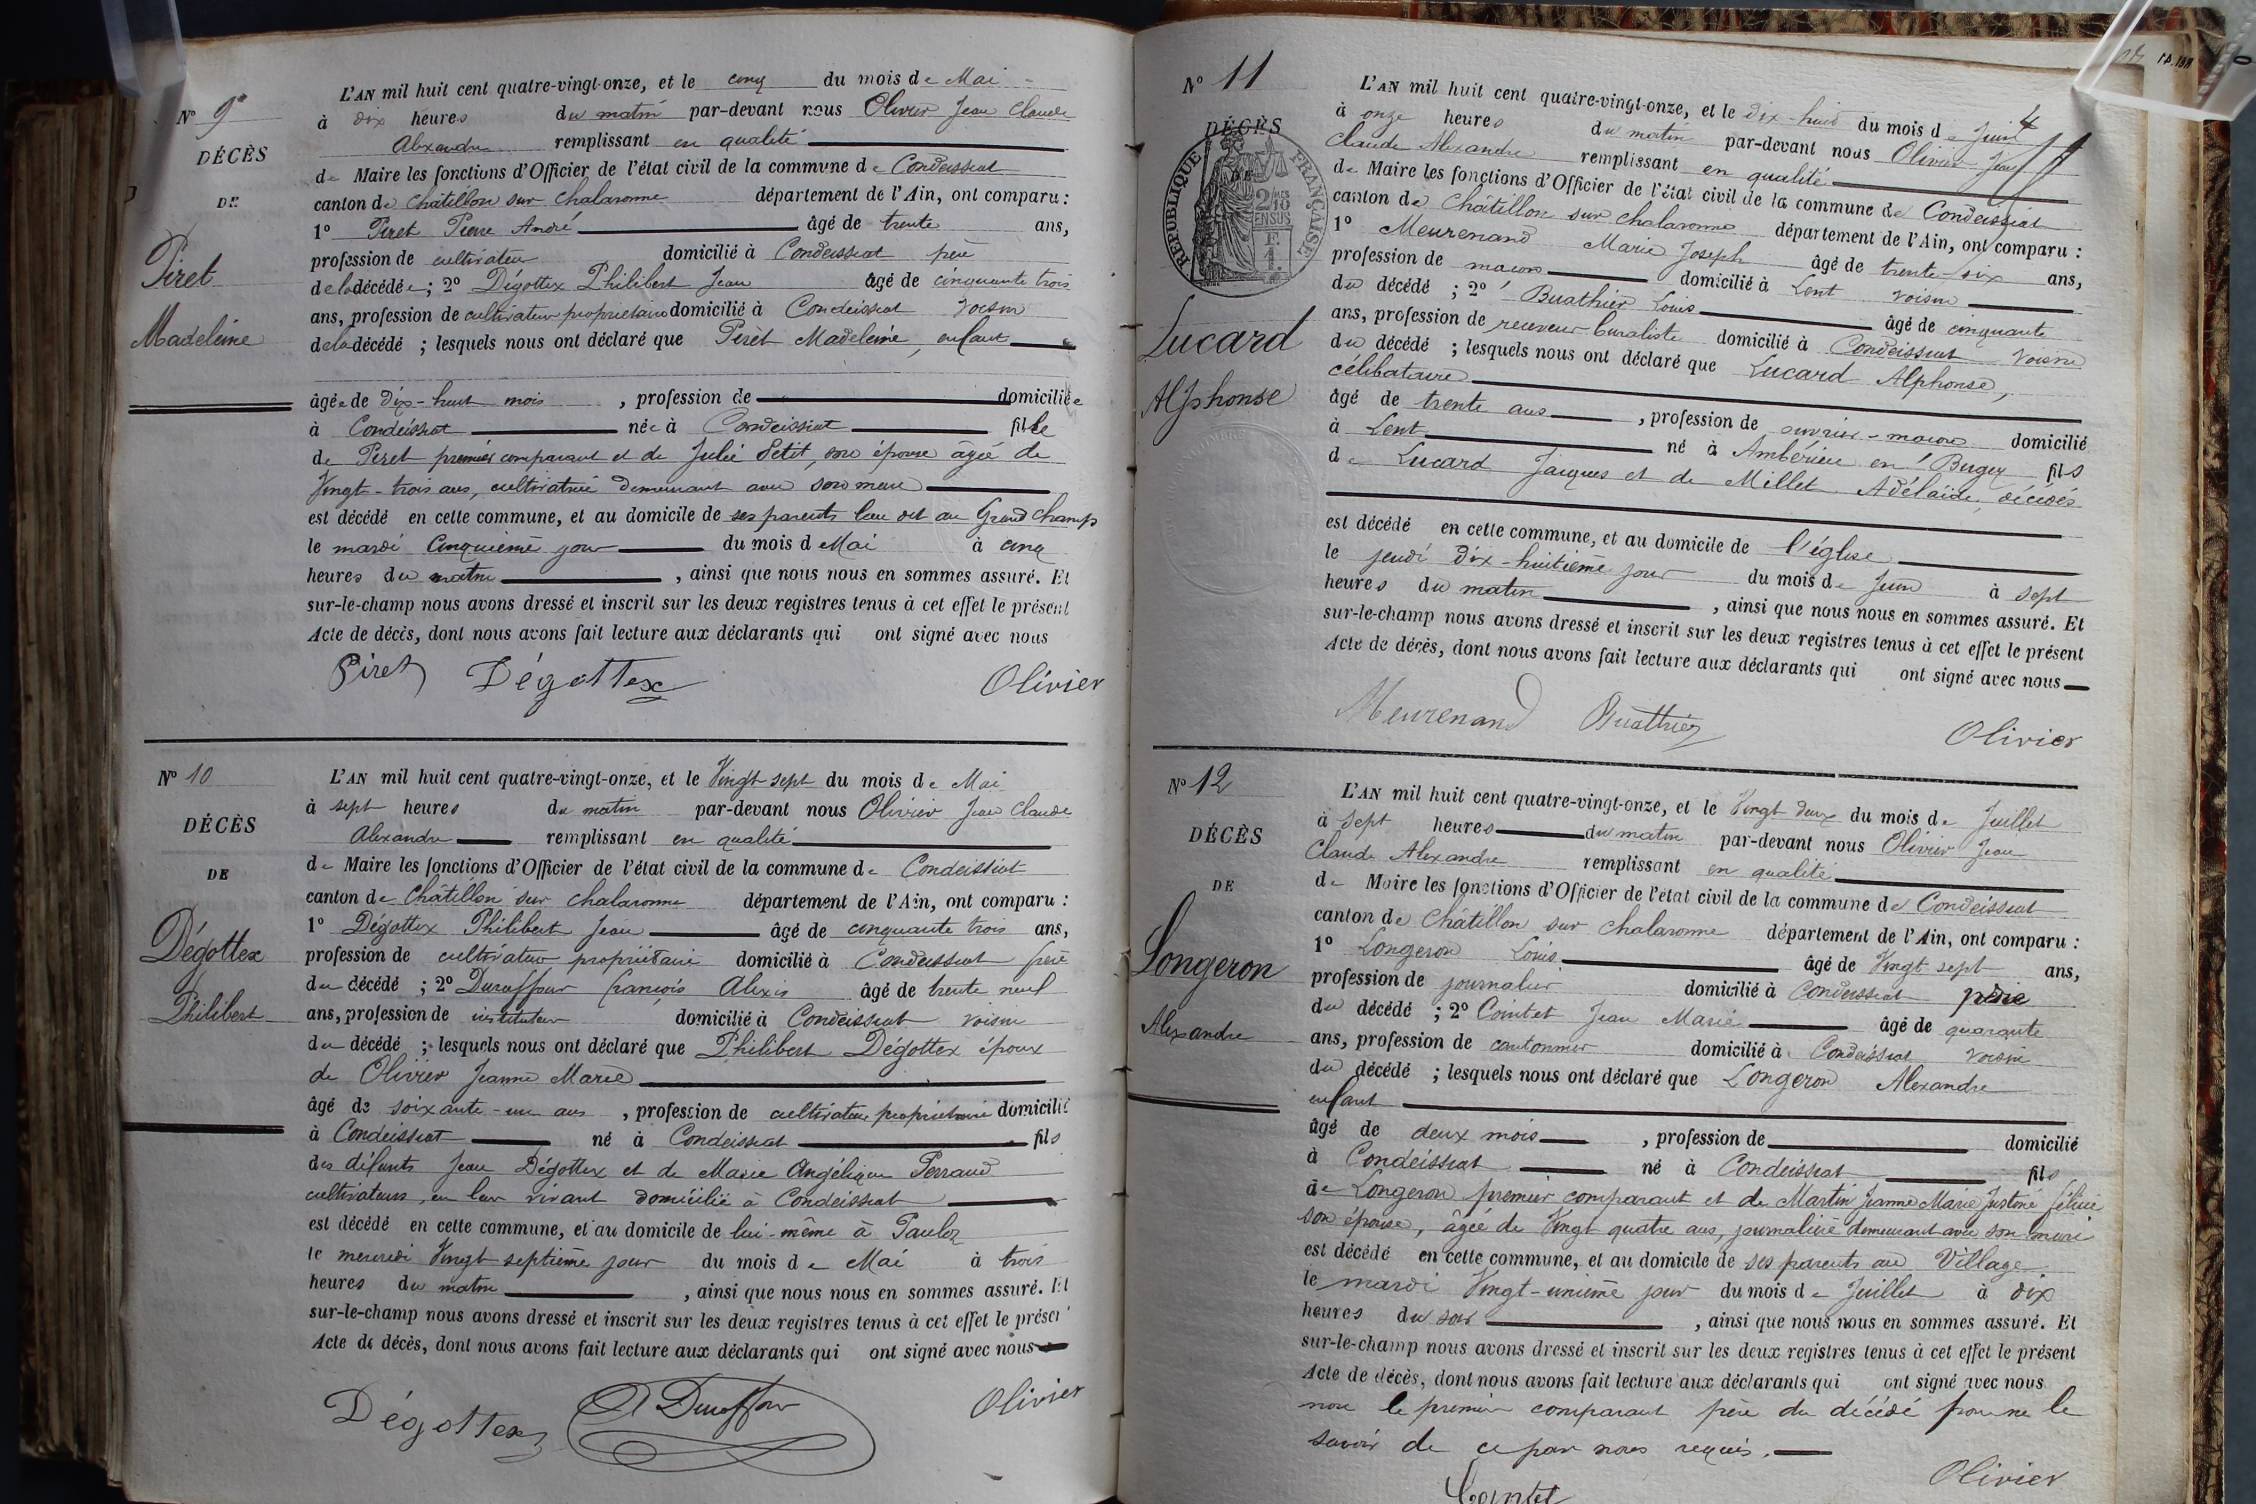 N° 9
DÉCÈS
DE
Piret
Madeleine
L'AN mil huit cent quatre-vingt-onze, et le cinq du mois de Mai
à dix heures du matin par-devant nous Olivier Jean Claude
Alexandre remplissant en qualité
de Maire les fonctions d'Officier de l'état civil de la commune de Condeissiat
canton de Châtillon sur Chalaronne département de l'Ain, ont comparu :
1° Piret Pierre André âgé de trente ans,
profession de cultivateur domicilié à Condeissiat père
de la décédée ; 2° Dégottex Philibert Jean âgé de cinquante trois
ans, profession de cultivateur propriétaire domicilié à Condeissiat voisin
de la décédé ; lesquels nous ont déclaré que Piret Madeleine, enfant
âgée de dix-huit mois , profession de domiciliée
à Condeissiat née à Condeissiat fille
de Piret premier comparant et de Julie Petit, son épouse âgée de
Vingt-trois ans, cultivatrice demeurant avec son mari
est décédé en cette commune, et au domicile de ses parents lieu dit au Grand Champ
le mardi cinquième jour du mois de Mai à cinq
heures du matin , ainsi que nous nous en sommes assuré. Et
sur-le-champ nous avons dressé et inscrit sur les deux registres tenus à cet effet le présent
Acte de décès, dont nous avons fait lecture aux déclarants qui ont signé avec nous
Piret Dégottex Olivier
N° 10
DÉCÈS
DE
Dégottex
Philibert
L'AN mil huit cent quatre-vingt-onze, et le Vingt sept du mois de Mai
à sept heures du matin par-devant nous Olivier Jean Claude
Alexandre remplissant en qualité
de Maire les fonctions d'Officier de l'état civil de la commune de Condeissiat
canton de Châtillon sur Chalaronne département de l'Ain, ont comparu :
1° Dégottex Philibert Jean âgé de cinquante trois ans,
profession de cultivateur propriétaire domicilié à Condeissiat frère
du décédé ; 2° Duraffour François Alexis âgé de trente neuf
ans, profession de instituteur domicilié à Condeissiat voisin
du décédé ; lesquels nous ont déclaré que Philibert Dégottex époux
de Olivier Jeanne Marie
âgé de soixante-un ans , profession de cultivateur propriétaire domicilié
à Condeissiat né à Condeissiat fils
des défunts Jean Dégottex et de Marie Angélique Perraud
cultivateurs, en leur vivant domicilié à Condeissiat
est décédé en cette commune, et au domicile de lui-même à
le mercredi Vingt septième jour du mois de Mai à trois
heures du matin , ainsi que nous nous en sommes assuré. Et
sur-le-champ nous avons dressé et inscrit sur les deux registres tenus à cet effet le présent
Acte de décès, dont nous avons fait lecture aux déclarants qui ont signé avec nous
Dégottex A Duraffour Olivier
N° 11
DÉCÈS
DE
RÉPUBLIQUE FRANÇAISE
Lucard
Alphonse
L'AN mil huit cent quatre-vingt-onze, et le dix-huit du mois de Juin
à onze heures du matin par-devant nous Olivier Jean
Claude Alexandre remplissant en qualité
de Maire les fonctions d'Officier de l'état civil de la commune de Condeissiat
canton de Châtillon sur Chalaronne département de l'Ain, ont comparu :
1° Meurenand Marie Joseph âgé de trente six ans,
profession de maçon domicilié à Lent voisin
du décédé ; 2° Buathier Louis âgé de cinquante
ans, profession de receveur buraliste domicilié à Condeissiat voisin
du décédé ; lesquels nous ont déclaré que Lucard Alphonse,
célibataire
âgé de trente ans , profession de ouvrier-maçon domicilié
à Lent né à Ambérieu en Bugey fils
de Lucard Jacques et de Millet Adélaïde, décédés
est décédé en cette commune, et au domicile de l'église
le jeudi dix-huitième jour du mois de Juin à sept
heures du matin , ainsi que nous nous en sommes assuré. Et
sur-le-champ nous avons dressé et inscrit sur les deux registres tenus à cet effet le présent
Acte de décès, dont nous avons fait lecture aux déclarants qui ont signé avec nous
Meurenand Buathier Olivier
N° 12
DÉCÈS
DE
Longeron
Alexandre
L'AN mil huit cent quatre-vingt-onze, et le Vingt deux du mois de Juillet
à sept heures du matin par-devant nous Olivier Jean
Claude Alexandre remplissant en qualité
de Maire les fonctions d'Officier de l'état civil de la commune de Condeissiat
canton de Châtillon sur Chalaronne département de l'Ain, ont comparu :
1° Longeron Louis âgé de Vingt sept ans,
profession de journalier domicilié à Condeissiat père
du décédé ; 2° Cointet Jean Marie âgé de quarante
ans, profession de cantonnier domicilié à Condeissiat voisin
du décédé ; lesquels nous ont déclaré que Longeron Alexandre
enfant
âgé de deux mois , profession de domicilié
à Condeissiat né à Condeissiat fils
de Longeron premier comparant et de Martin Jeanne Marie Justine Félicie
son épouse, âgée de Vingt quatre ans, journalière demeurant avec son mari
est décédé en cette commune, et au domicile de ses parents au Village
le mardi Vingt-unième jour du mois de Juillet à dix
heures du soir , ainsi que nous nous en sommes assuré. Et
sur-le-champ nous avons dressé et inscrit sur les deux registres tenus à cet effet le présent
Acte de décès, dont nous avons fait lecture aux déclarants qui ont signé avec nous
non le premier comparant père du décédé pour ne le
savoir de ce par nous requis.
Cointet Olivier